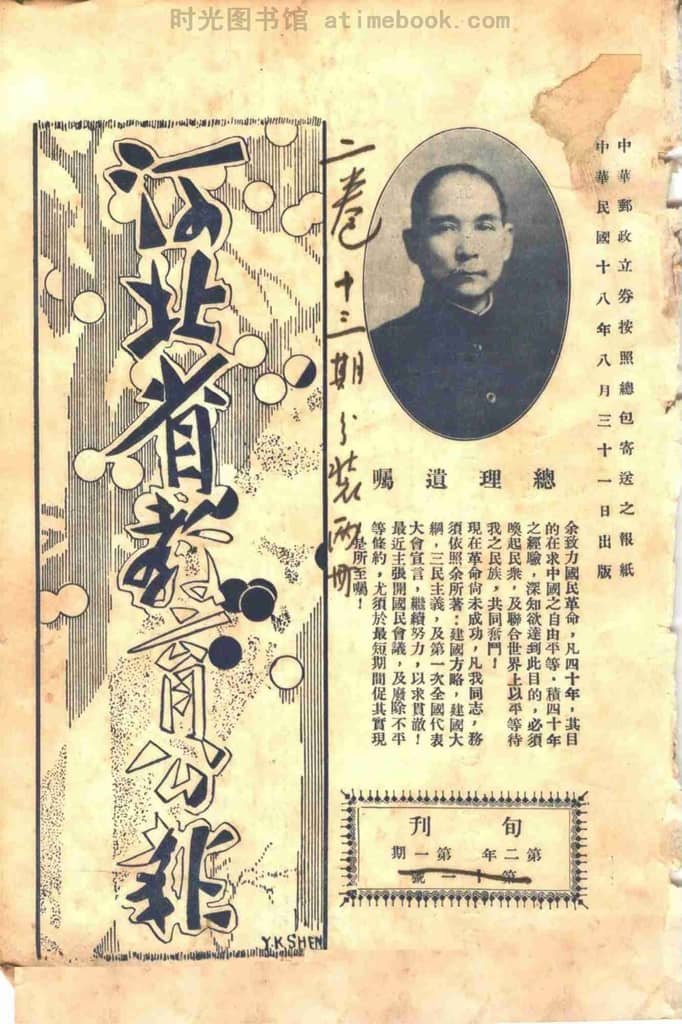 时光图书馆 atimebook.com
中華郵政立券按照總包寄送之報紙
中華民國十八年八月三十一日出版
總理遺囑
余致力國民革命，凡四十年，其目
的在求中國之自由平等。積四十年
之經驗，深知欲達到此目的，必須
喚起民衆，及聯合世界上以平等待
我之民族，共同奮鬥！
現在革命尙未成功，凡我同志，務
須依照余所著：建國方略，建國大
綱，三民主義，及第一次全國代表
大會宣言，繼續努力，以求貫澈！
最近主張開國民會議，及廢除不平
等條約，尤須於最短期間促其實現
是所至囑！
旬刊
第二年第一期
第十一號
二卷十三期分裝兩冊
河北省教育公報
Y.K SHEN